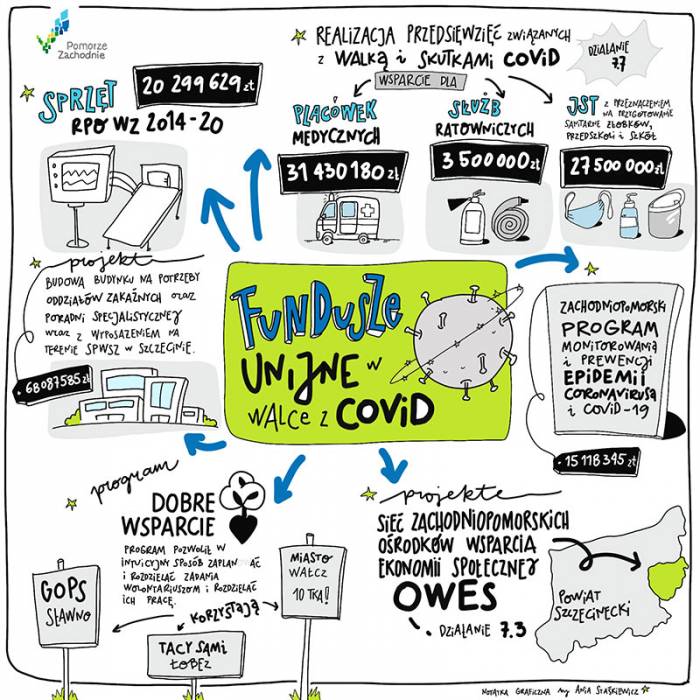 Pomorze
Zachodnie
SPRZĘT
20 299 629 zł
RPO WZ 2014-20
REALIZACJA PRZEDSIĘWZIĘĆ ZWIĄZANYCH
Z WALKĄ i SKUTKAMI COVID
DZIAŁANIE
7.7
WSPARCIE DLA
PLACÓWEK
MEDYCZNYCH
31 430 180 zł
SŁUŻB
RATOWNICZYCH
3 500 000 zł
JST Z PRZEZNACZENIEM
NA PRZYGOTOWANIE
SANITARNE ŻŁOBKÓW,
PRZEDSZKOLI i SZKÓŁ
27 500 000 zł
projekt
BUDOWA BUDYNKU NA POTRZEBY
ODDZIAŁÓW ZAKAŹNYCH oraz
PORADNI SPECJALISTYCZNEJ
wraz z WYPOSAŻENIEM NA
TERENIE SPWSZ w SZCZECINIE.
68 087 585 zł
FUNDUSZE
UNIJNE w
WALCE z COVID
ZACHODNIOPOMORSKI
PROGRAM
MONITOROWANIA
i PREWENCJI
EPIDEMII
CORONAVIRUSA
i COVID-19
15 118 345 zł
program
DOBRE
WSPARCIE
PROGRAM POZWOLIŁ W
INTUICYJNY SPOSÓB ZAPLANOWAĆ
i ROZDZIELAĆ ZADANIA
WOLONTARIUSZOM i ROZDZIELAĆ
ICH PRACĘ.
KORZYSTAJĄ
GOPS
SŁAWNO
TACY SAMI
ŁOBEZ
MIASTO
WAŁCZ
10 TKA!
projekt
SIEĆ ZACHODNIOPOMORSKICH
OŚRODKÓW WSPARCIA
EKONOMII SPOŁECZNEJ
OWES
DZIAŁANIE 7.3
POWIAT
SZCZECINECKI
NOTATKA GRAFICZNA by ANIA STAŚKIEWICZ